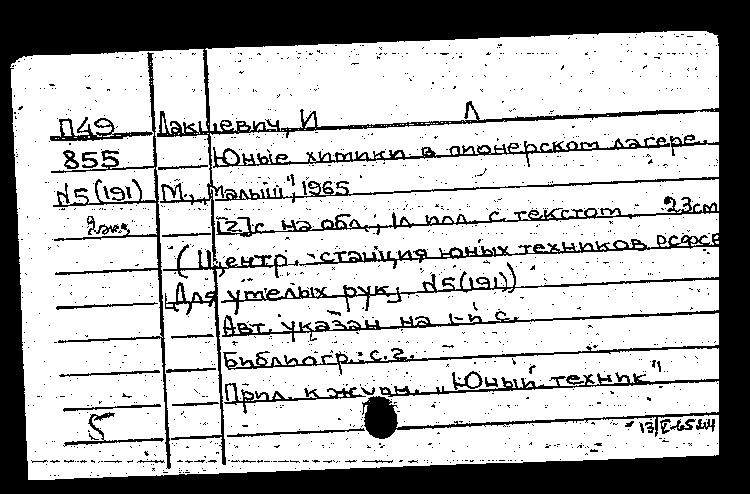 П49 Лакшевич, И Л
855 Юные химики в пионерском лагере.
N5(191) М., "Малыш", 1965
2 экз [2]с на обл.; 1л илл. с текстом. 23см
(Центр. станция юных техников РСФСР
Для умелых рук, N5(191))
Авт. указан на 1-й с.
Библиогр.: с.2.
Прил. к журн. "Юный техник"
5